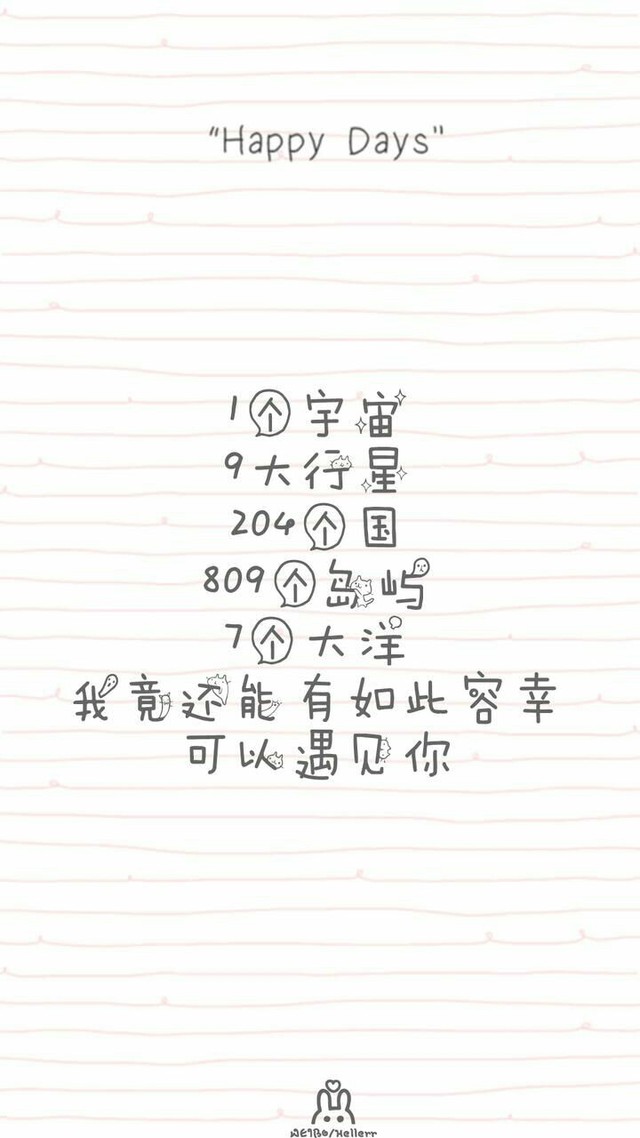 "Happy Days"
1个宇宙
9大行星
204个国
809个岛屿
7个大洋
我竟还能有如此容幸
可以遇见你
WEIBO/Hellerr